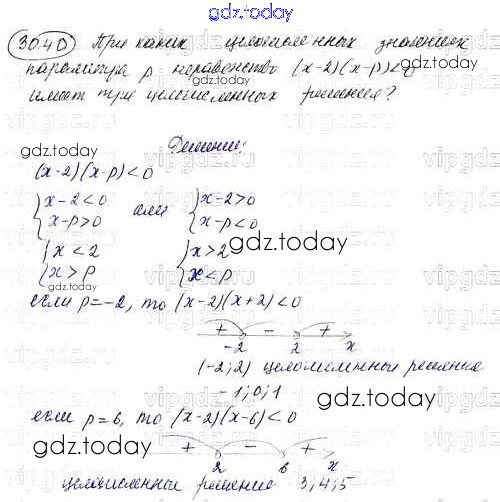 gdz.today
30.40 При каких целочисленных значениях
параметра р неравенство (x-2)(x-p)<0
имеет три целочисленных решения?
gdz.today
Решение:
gdz.today
(x-2)(x-p)<0
{x-2<0 или {x-2>0
{x-p>0 {x-p<0
{x<2 {x>2
{x>p {x<p
gdz.today
если p=-2, то (x-2)(x+2)<0
+ - +
-2 2 x
(-2;2) целочисленные решения
gdz.today
-1; 0; 1
если p=6, то (x-2)(x-6)<0
gdz.today
+ - +
2 6 x
целочисленные решения 3; 4; 5
gdz.today